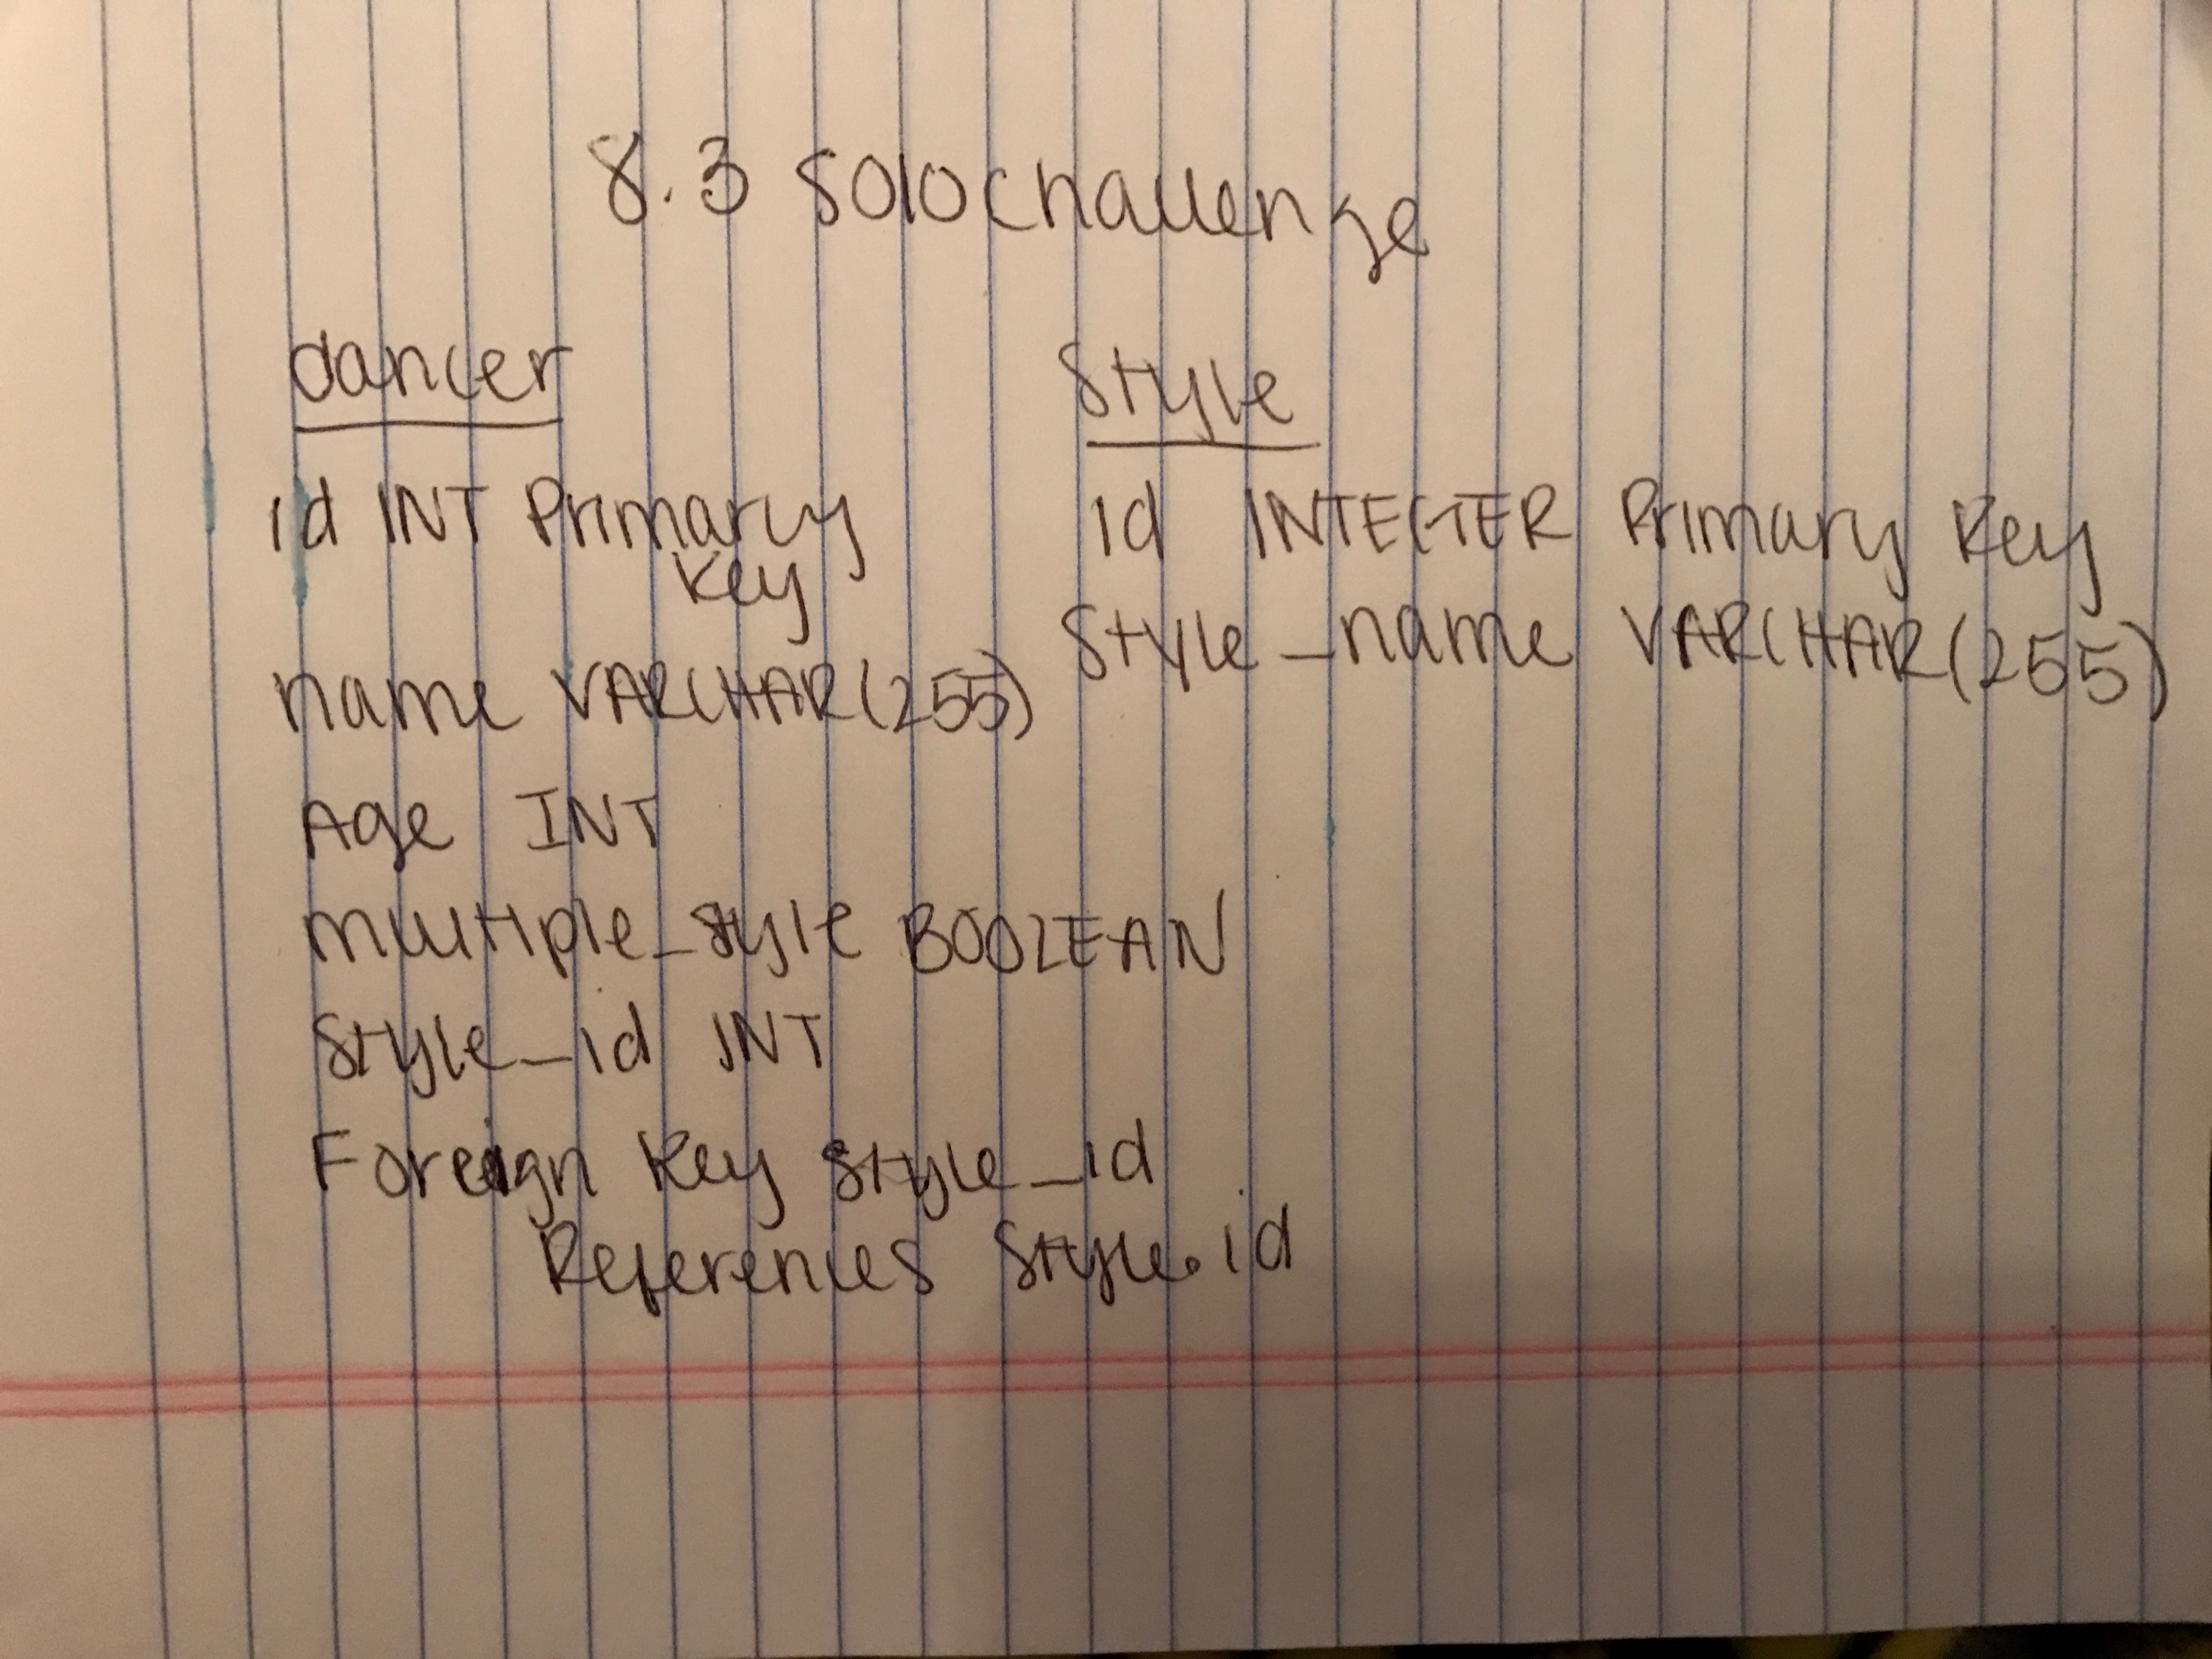 8.3 Solo Challenge
dancer
id INT Primary
Key
name VARCHAR(255)
Age INT
multiple_style BOOLEAN
style_id INT
Foreign Key style_id
References style.id
style
id INTEGER Primary Key
style_name VARCHAR(255)